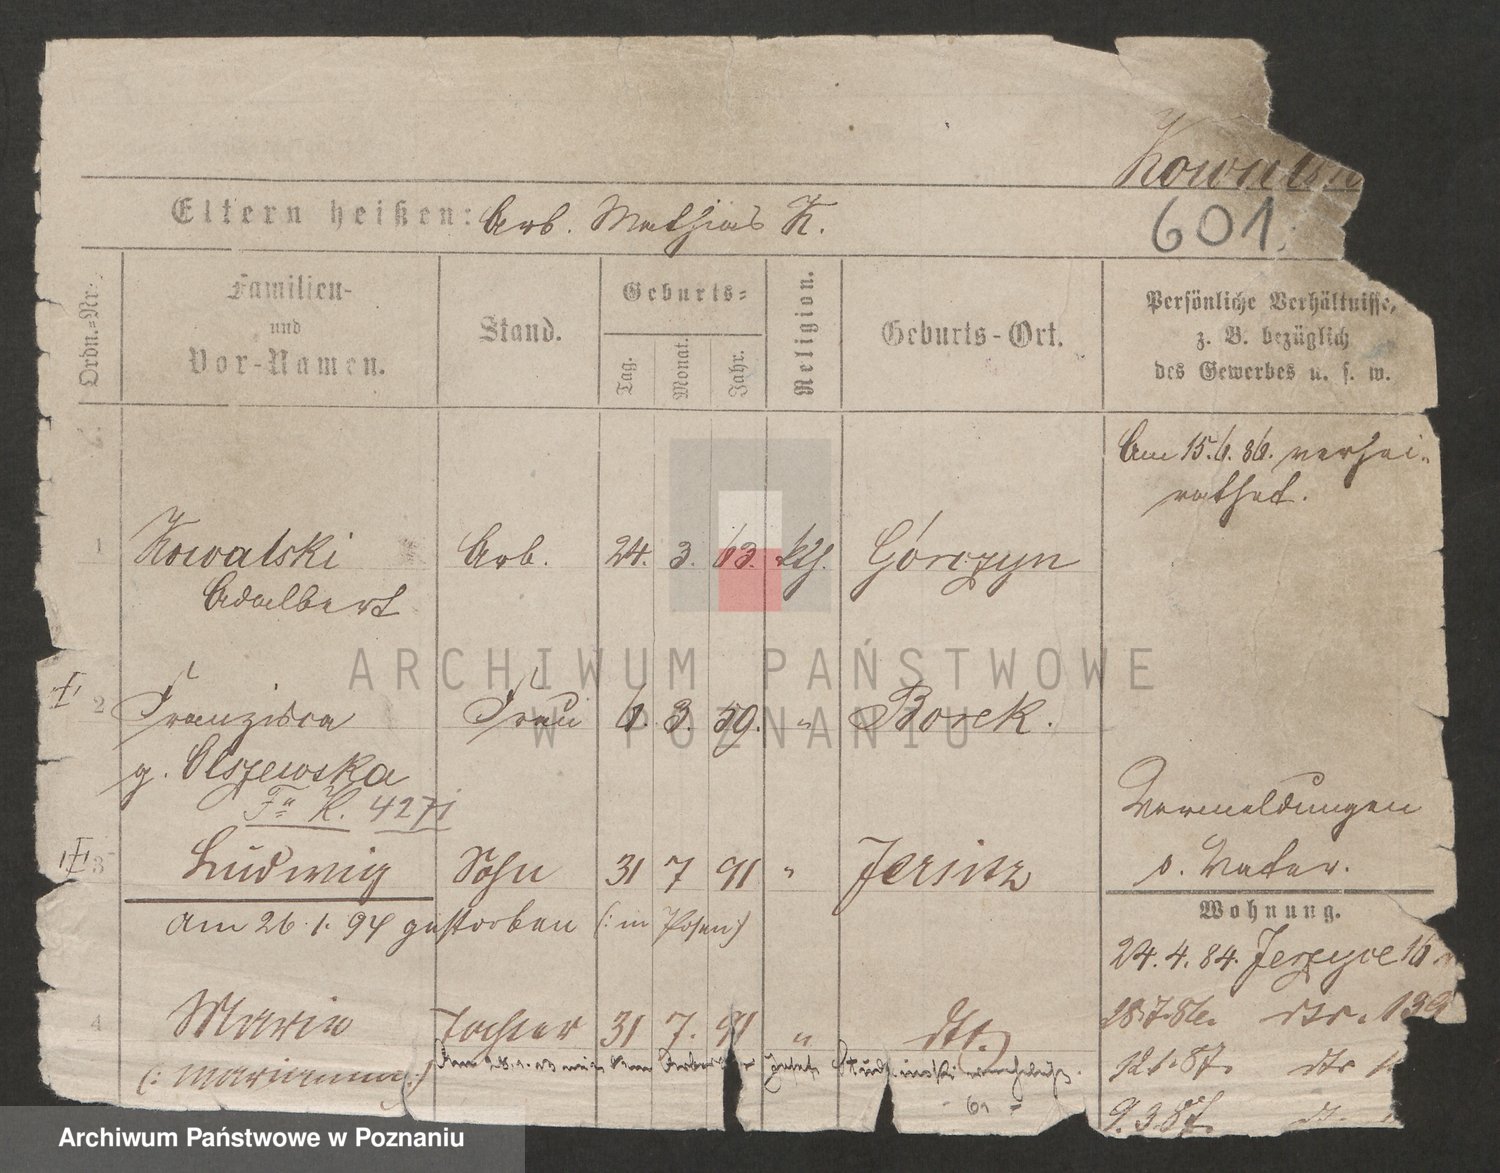 Kowalski
Eltern heißen: Arb. Mathias K.
601.
Ordn.=Nr.
Familien-
und
Vor-Namen.
Stand.
Geburts=
Tag.
Monat.
Jahr.
Religion.
Geburts-Ort.
Persönliche Verhältnisse,
z. B. bezüglich
des Gewerbes u. s. w.
Am 15.6.86. verhei-
rathet.
1 Kowalski Arb. 24. 3. 63. kth. Górczyn
Adalbert
2 Franziska Frau 6. 3. 59. " Borek.
g. Olszewska
K. 4271
Vermeldungen
s. Vater.
3 Ludwig Sohn 31 7 91 " Jersitz
am 26.1.94 gestorben (: in Posen :)
Wohnung.
24.4.84. Jerzyce 16
28.7.86. dto. 139
4 Maria Tochter 31 7. 91 " dto.
(: Marianna :)
12.1.87. dto
9.3.87. dto.
ARCHIWUM PAŃSTWOWE
W POZNANIU
Archiwum Państwowe w Poznaniu